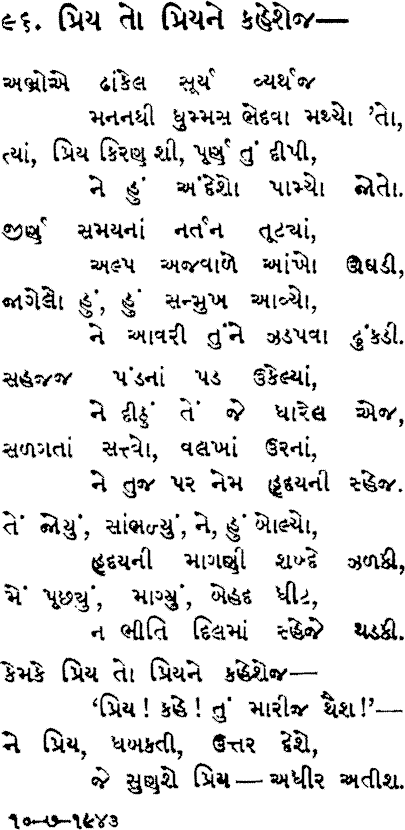 ૯૬. પ્રિય તો પ્રિયને કહેશેજ—
અભ્રોએ ઢાંકેલ સૂર્ય વ્યર્થજ
મનનથી ધુમ્મસ ભેદવા મથ્યો 'તો,
ત્યાં, પ્રિય કિરણ શી, પૂર્ણ તું દીપી,
ને હું અંદેશો પામ્યો જોતો.
જીર્ણ સમયનાં નર્તન તૂટ્યાં,
અલ્પ અજવાળે આંખો ઊઘડી,
જાગેલો હું, હું સન્મુખ આવ્યો,
ને આવરી તુંને ઝડપવા ઢુંકડી.
સહજજ પંડનાં પડ ઉકેલ્યાં,
ને દીઠું તેં જે ધારેલ એજ,
સળગતાં સત્ત્વો, વલખાં ઉરનાં,
ને તુજ પર નેમ હૃદયની સ્હેજ.
તેં જોયું, સાંભળ્યું, ને, હું બોલ્યો,
હૃદયની માગણી શબ્દે ઝળકી,
મેં પૂછ્યું, માગ્યું, બેહદ ધીટ,
ન ભીતિ દિલમાં સ્હેજે થડકી.
કેમકે પ્રિય તો પ્રિયને કહેશેજ—
'પ્રિય! કહે! તું મારીજ થૈશ!'—
ને પ્રિય, ધબકતી, ઉત્તર દેશે,
જે સુણશે પ્રિય — અધીર અતીશ.
૧૦–૭–૧૯૪૩